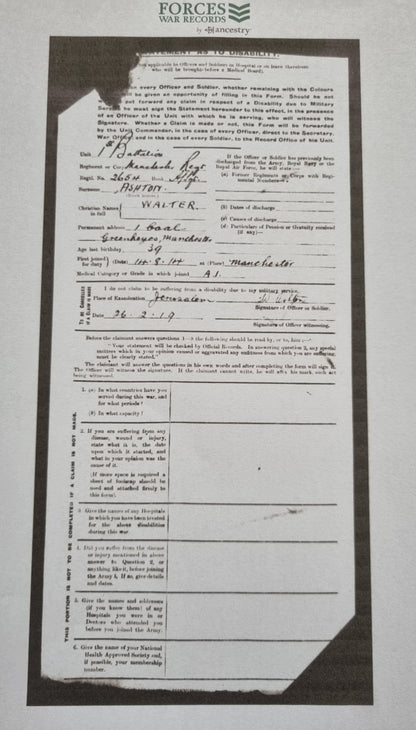 FORCES
WAR RECORDS
by ancestry
STATEMENT AS TO DISABILITY.
applicable to Officers and Soldiers in Hospital or on leave therefrom
who will be brought before a Medical Board).
every Officer and Soldier, whether remaining with the Colours
be given an opportunity of filling in this Form. Should he not
put forward any claim in respect of a Disability due to Military
Service he must sign the Statement hereunder to this effect, in the presence
of an Officer of the Unit with which he is serving, who will witness the
Signature. Whether a Claim is made or not, this Form will be forwarded
by the Unit Commander, in the case of every Officer, direct to the Secretary,
War Office and in the case of every Soldier, to the Record Office of his Unit.
Unit 1st Battalion
Regiment or Corps Manchester Regt
Regtl. No. 2654 Rank
Surname ASHTON.
Christian Names in full WALTER.
Permanent address 1 Coal
Greenheyes, Manchester
Age last birthday 39
First joined for duty (Date) 14.8.14 at (Place) Manchester
Medical Category or Grade in which joined A1.
If the Officer or Soldier has previously been
discharged from the Army, Royal Navy or the
Royal Air Force, he will state—
(a) Former Regiments or Corps with Regimental Numbers
(b) Dates of discharge
(c) Causes of discharge
(d) Particulars of Pension or Gratuity received
(if any)—
TO BE COMPLETED IF A CLAIM IS MADE
I do not claim to be suffering from a disability due to my military service.
Place of Examination Jerusalem
Signature of Officer or Soldier.
Date 26.2.19
Signature of Officer witnessing.
Before the claimant answers questions 1—6 the following should be read by, or to, him :—
"Your statement will be checked by Official Records. In answering question 2, any special
matters which in your opinion caused or aggravated any unfitness from which you are suffering
must be clearly stated."
The claimant will answer the questions in his own words and after completing the form will sign it.
The Officer will witness the signature. If the claimant cannot write, he will affix his mark, such act
being witnessed.
THIS PORTION IS NOT TO BE COMPLETED IF A CLAIM IS NOT MADE.
1. (a) In what countries have you
served during this war, and
for what periods?
(b) In what capacity?
2. If you are suffering from any
disease, wound or injury,
state what it is, the date
upon which it started, and
what in your opinion was the
cause of it.
(If more space is required a
sheet of foolscap should be
used and attached firmly to
this form).
3. Give the names of any Hospitals
in which you have been treated
for the above disabilities
during this war.
4. Did you suffer from the disease
or injury mentioned in above
answer to Question 2, or
anything like it, before joining
the Army? If so, give details
and dates.
5. Give the names and addresses
(if you know them) of any
Hospitals you were in or
Doctors who attended you
before you joined the Army.
6. Give the name of your National
Health Approved Society and,
if possible, your membership
number.